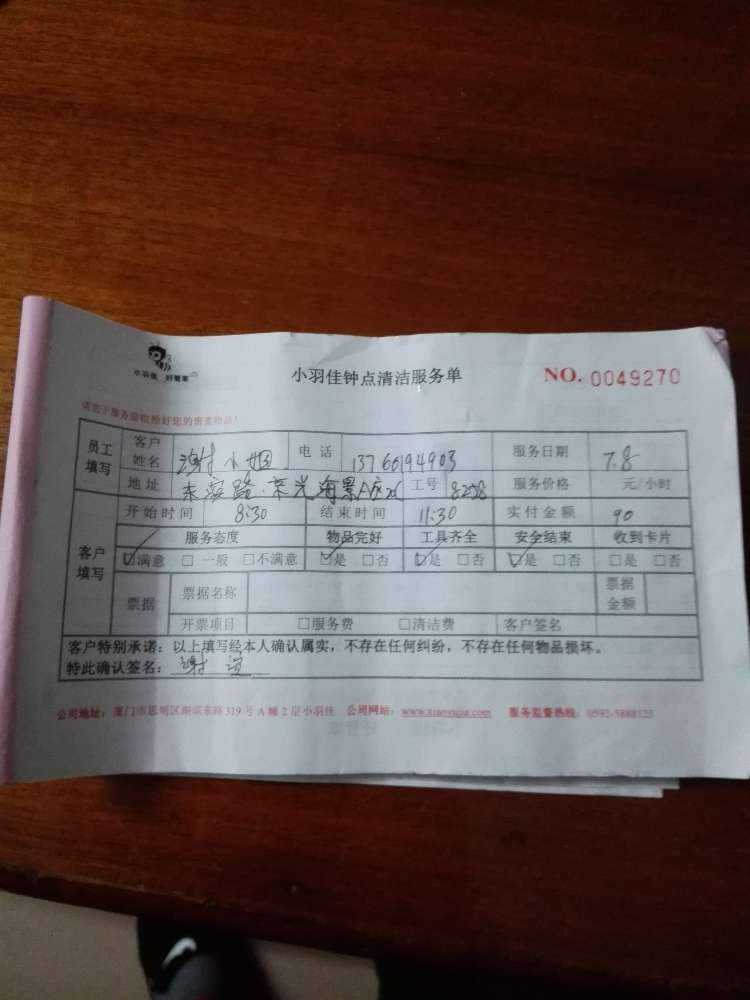 小羽佳 好管家
小羽佳钟点清洁服务单
NO. 0049270
请您于服务前收拾好您的贵重物品!
员工填写 客户姓名 谢小姐 电话 13760194903 服务日期 7.8
地址 东渡路 荣光海景A座 工号 8258 服务价格 元/小时
客户填写 开始时间 8:30 结束时间 11:30 实付金额 90
服务态度 物品完好 工具齐全 安全结束 收到卡片
☑满意 □一般 □不满意 ☑是 □否 ☑是 □否 ☑是 □否 □是 □否
票据 票据名称 票据金额
开票项目 □服务费 □清洁费 客户签名
客户特别承诺:以上填写经本人确认属实,不存在任何纠纷,不存在任何物品损坏。
特此确认签名:谢
公司地址:厦门市思明区湖滨东路319号A幢2层小羽佳 公司网站:www.xiaoyujia.com 服务监督热线:0592-5888125